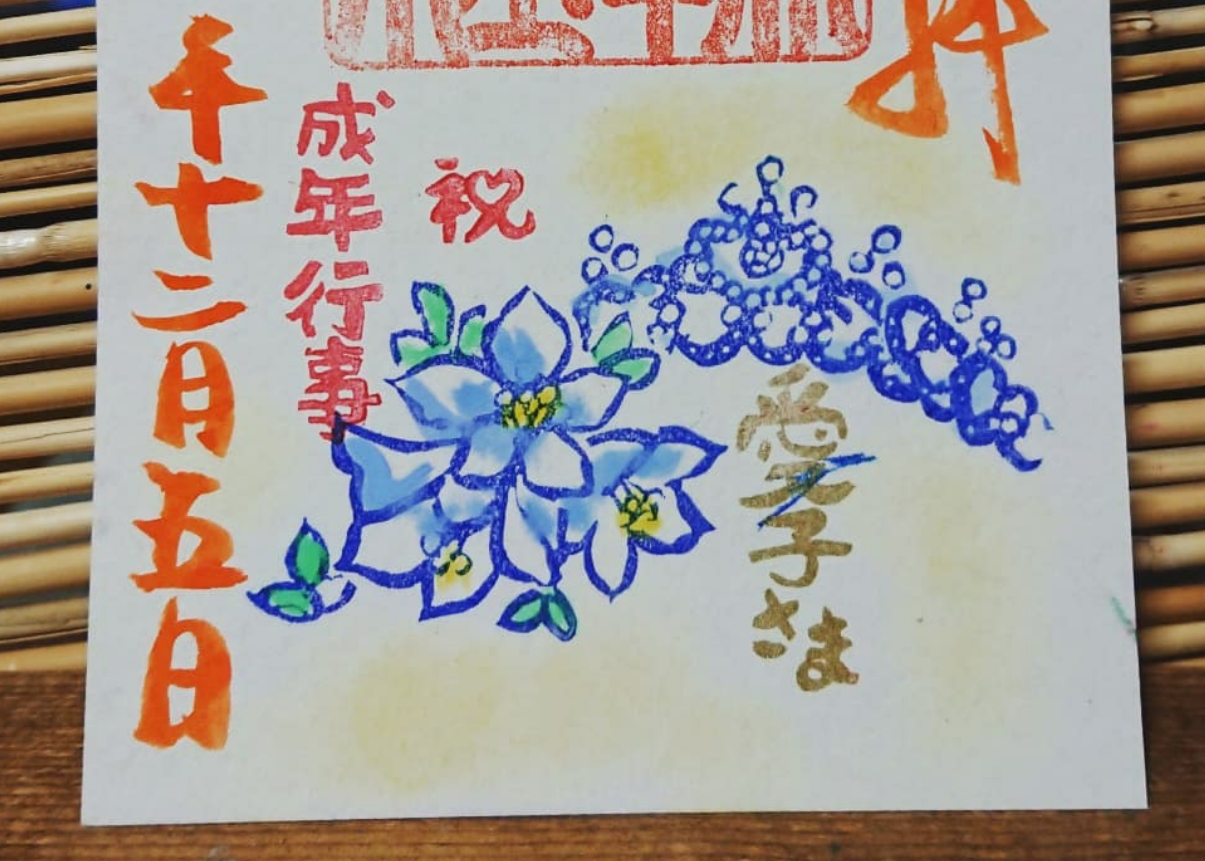 拝
祝
愛子さま
成年行事
年十二月五日